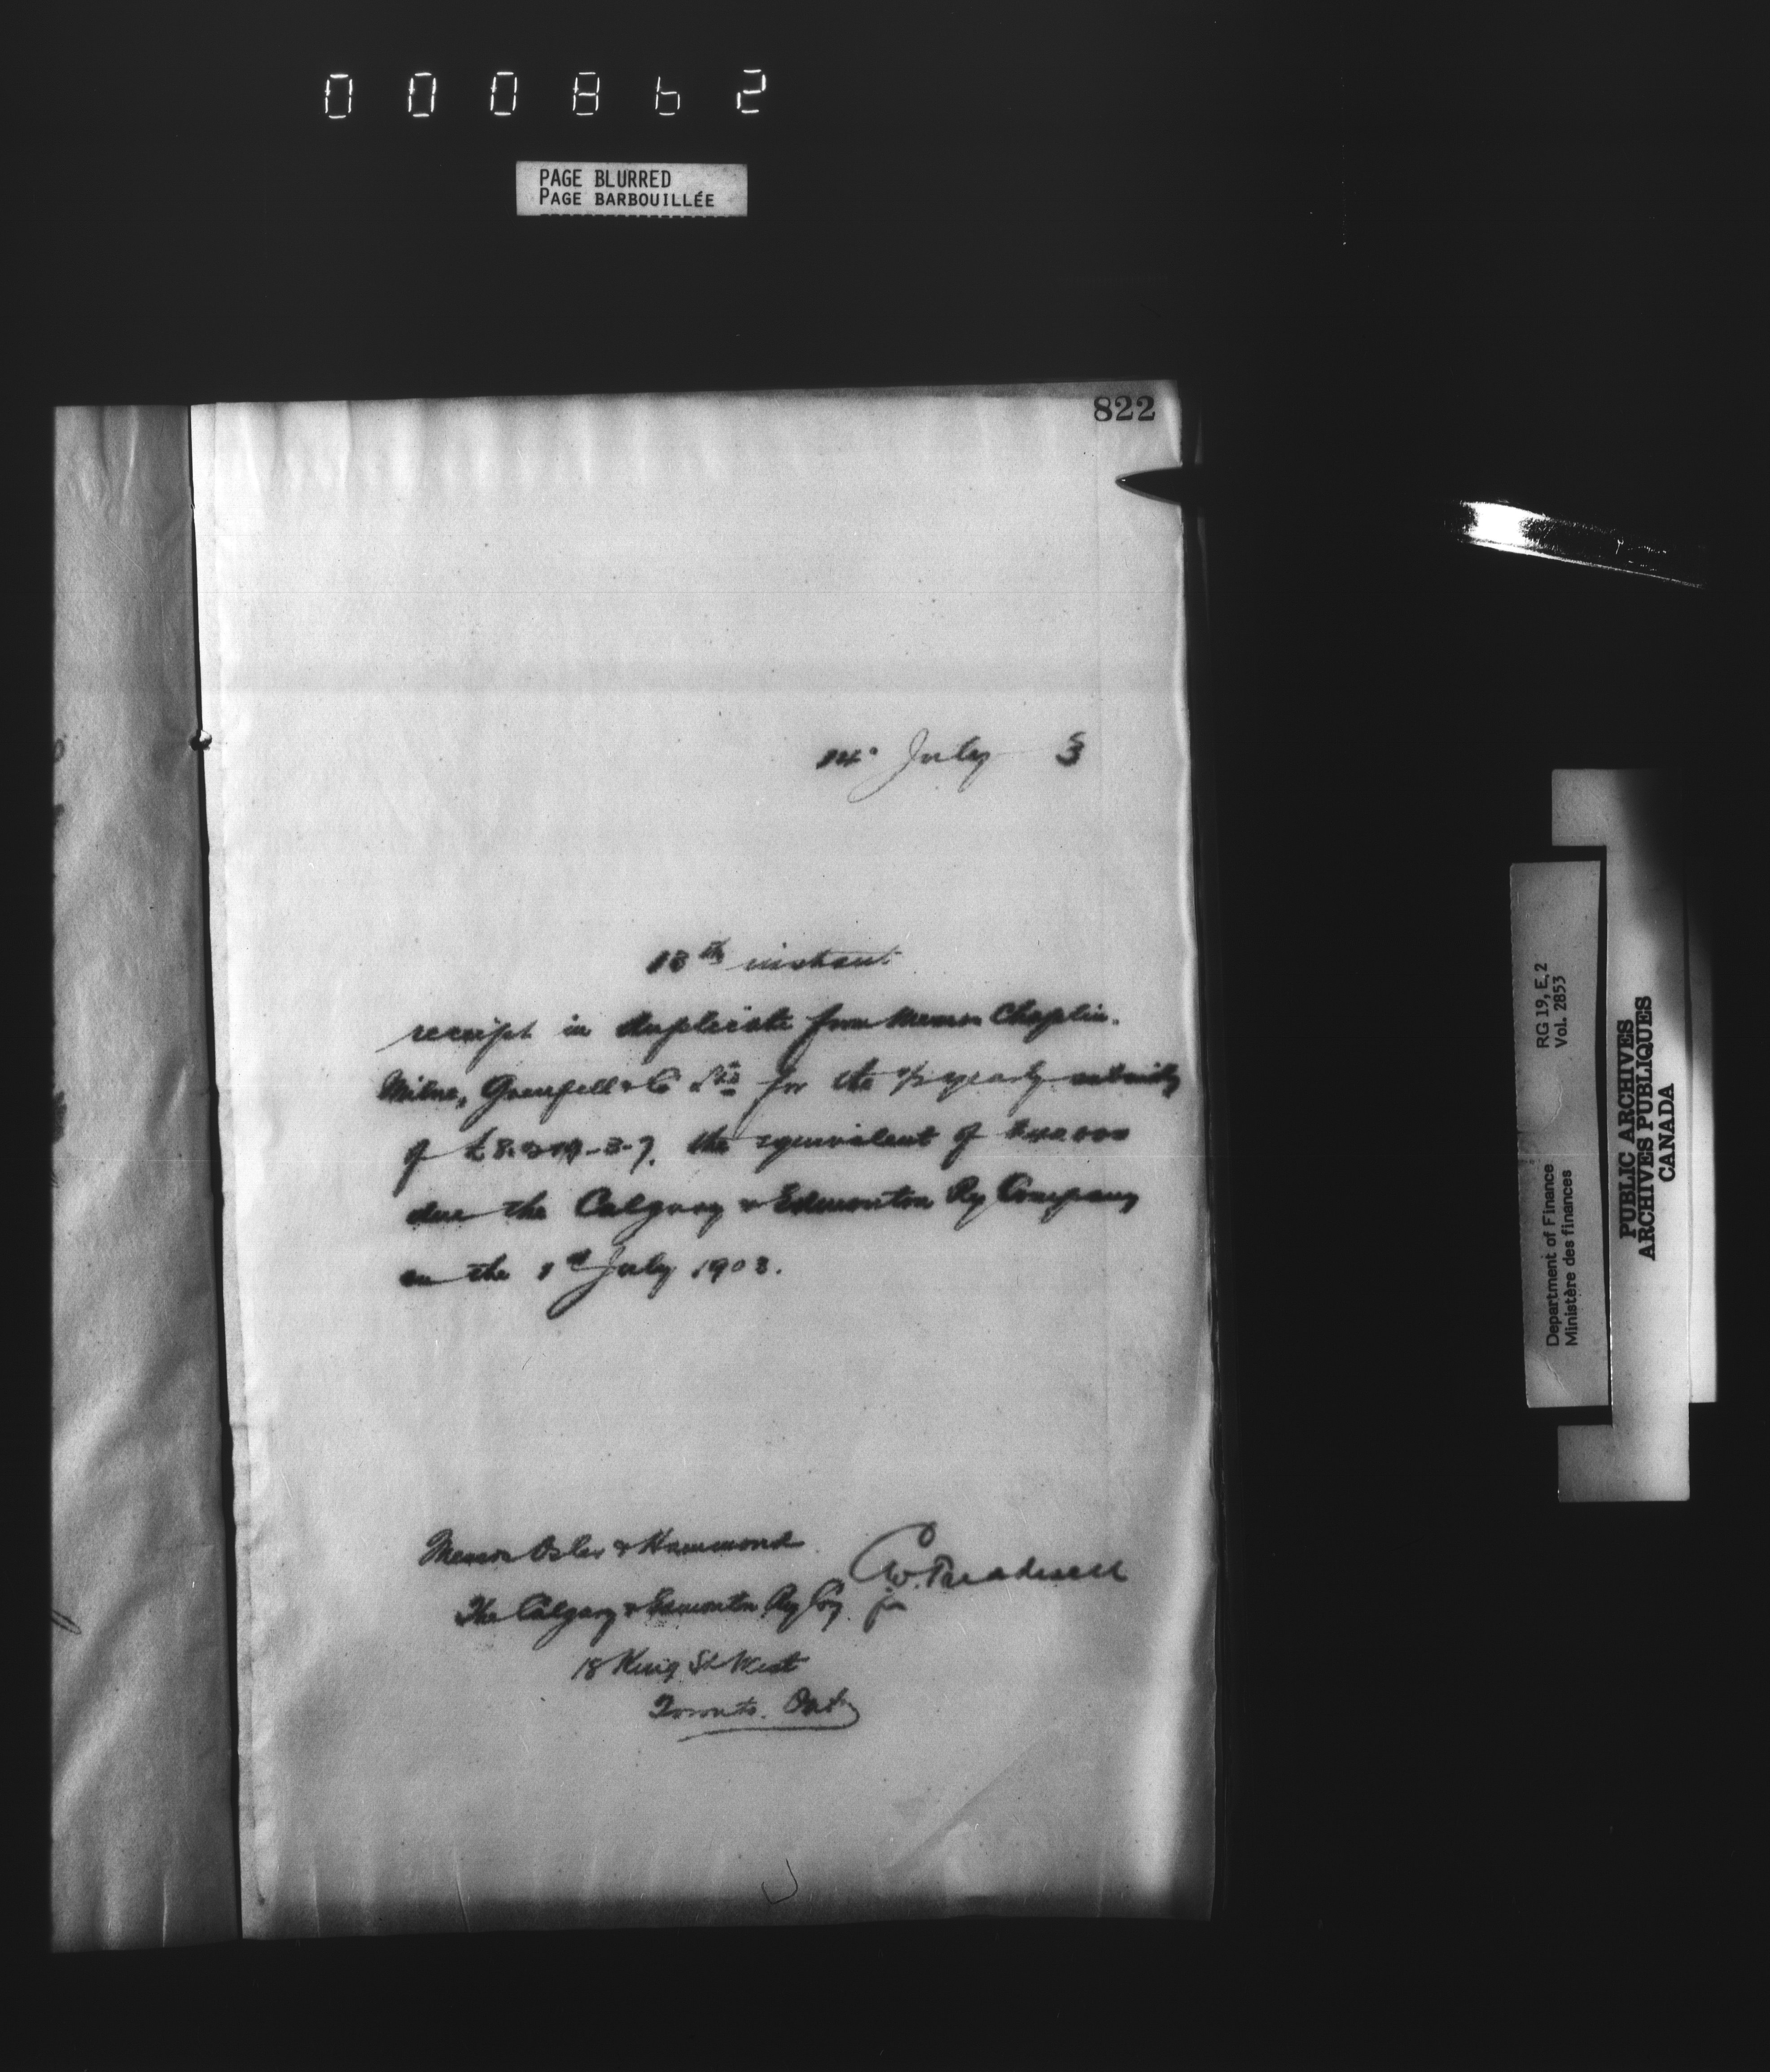 000862
PAGE BLURRED
PAGE BARBOUILLÉE
822
14. July 3
13th instant
receipt in duplicate from Messrs Chaplin.
Milne, Grenfell & Co Ltd for the ½ yearly subsidy
of the equivalent of $40.000
due the Calgary & Edmonton Ry Company
on the 1st July 1903.
Messrs Osler & Hammond
The Calgary & Edmonton Ry Coy. for
18 King St West
Toronto. Ont
RG 19, E, 2
Vol. 2853
Department of Finance
Ministère des finances
PUBLIC ARCHIVES
ARCHIVES PUBLIQUES
CANADA